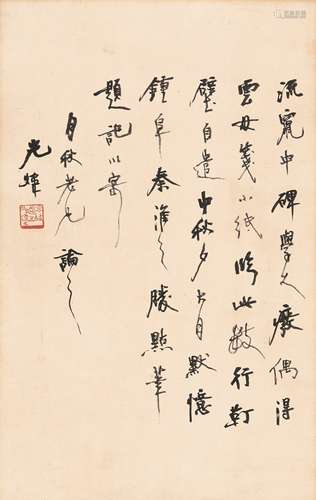 流寓中碑學久廢偶得
雲母箋小紙臨此數行訂
壁自遣中秋夕出月默憶
鍾阜秦淮之勝點筆
題記以寄
月秋老兄論之
光煒